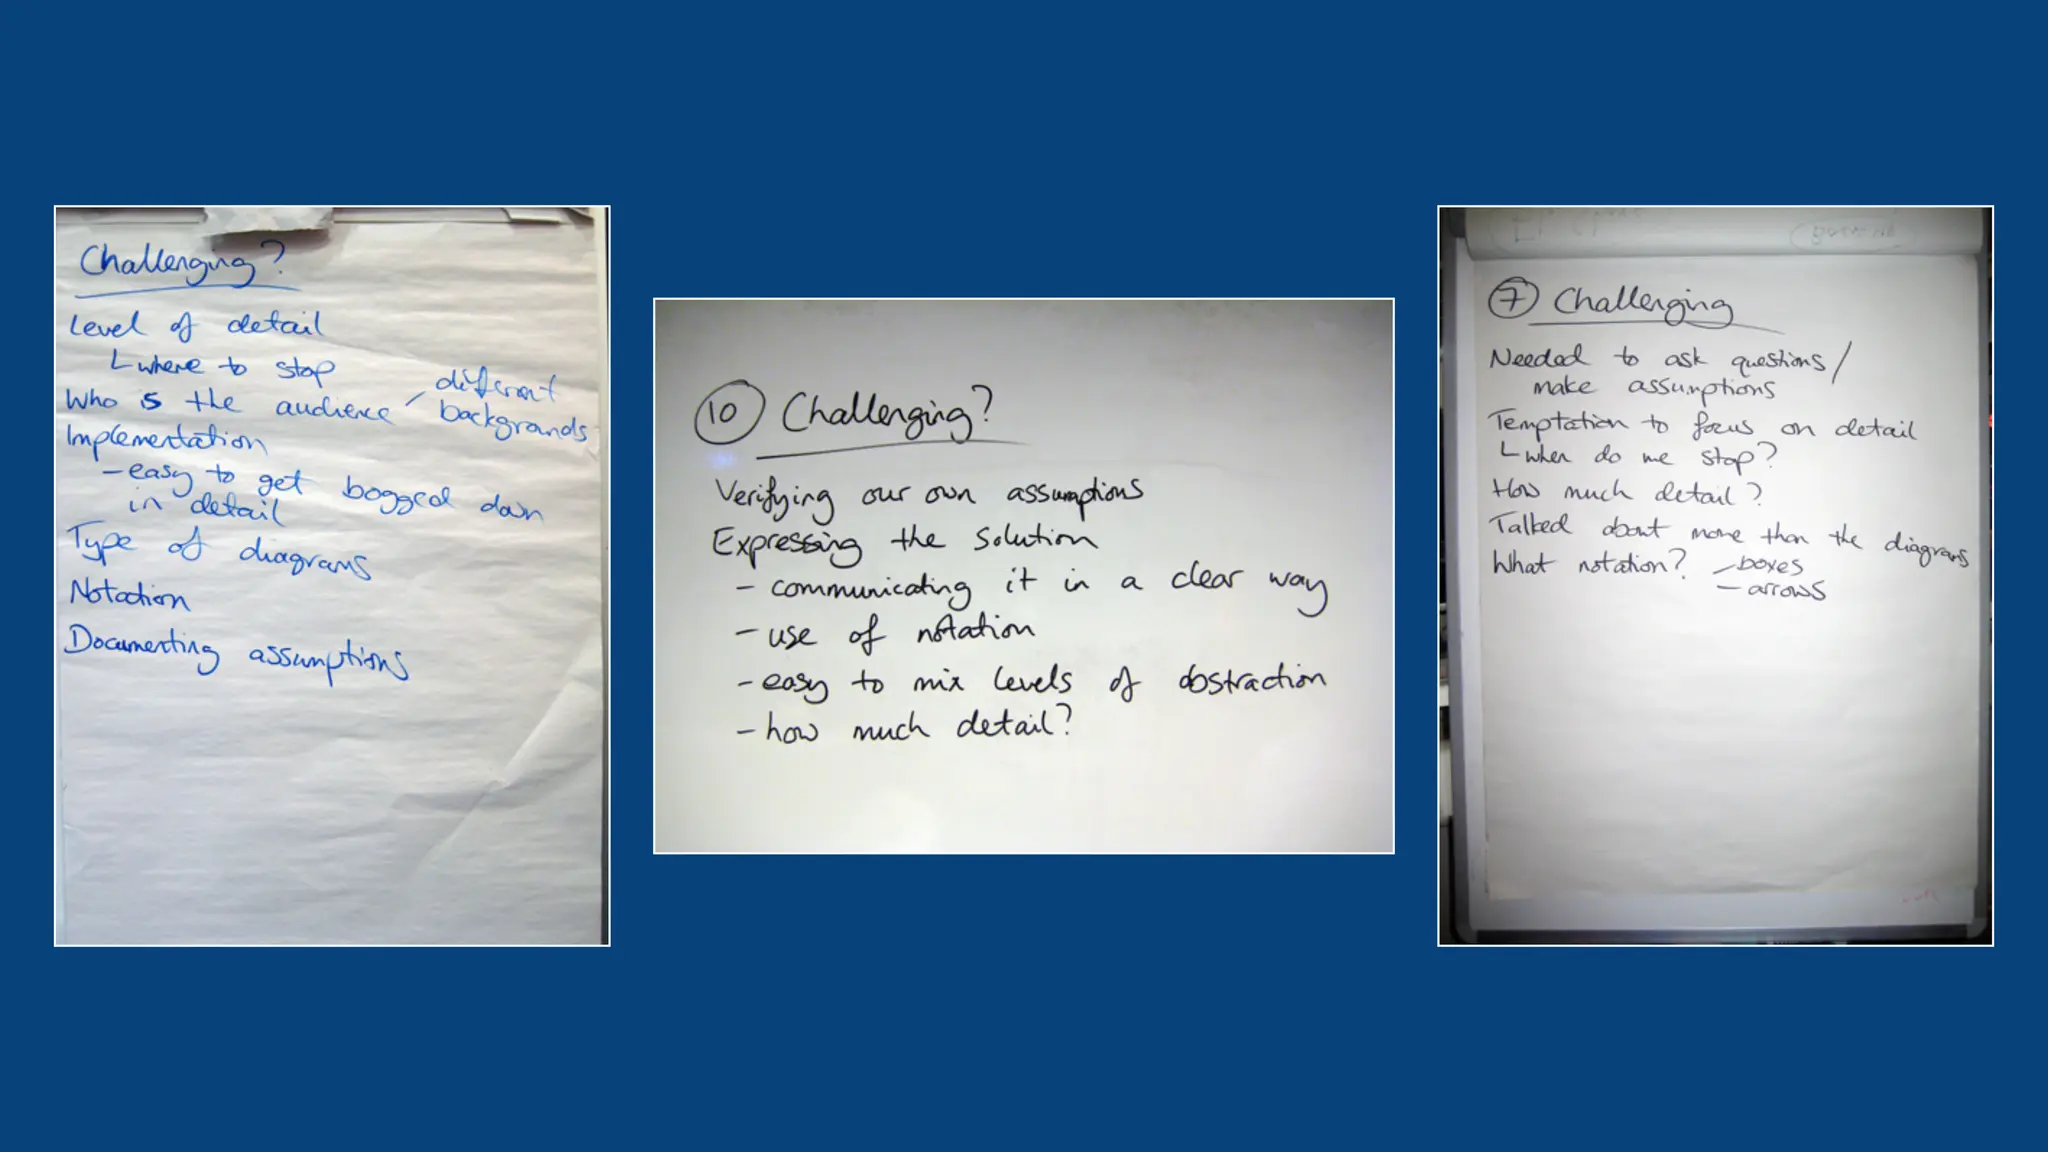 Challenging?
Level of detail
where to stop
Who is the audience / different
backgrounds
Implementation
- easy to get bogged down
in detail
Type of diagrams
Notation
Documenting assumptions
10 Challenging?
Verifying our own assumptions
Expressing the solution
- communicating it in a clear way
- use of notation
- easy to mix levels of abstraction
- how much detail?
7 Challenging
Needed to ask questions/
make assumptions
Temptation to focus on detail
when do we stop?
How much detail?
Talked about more than the diagrams
What notation? - boxes
- arrows